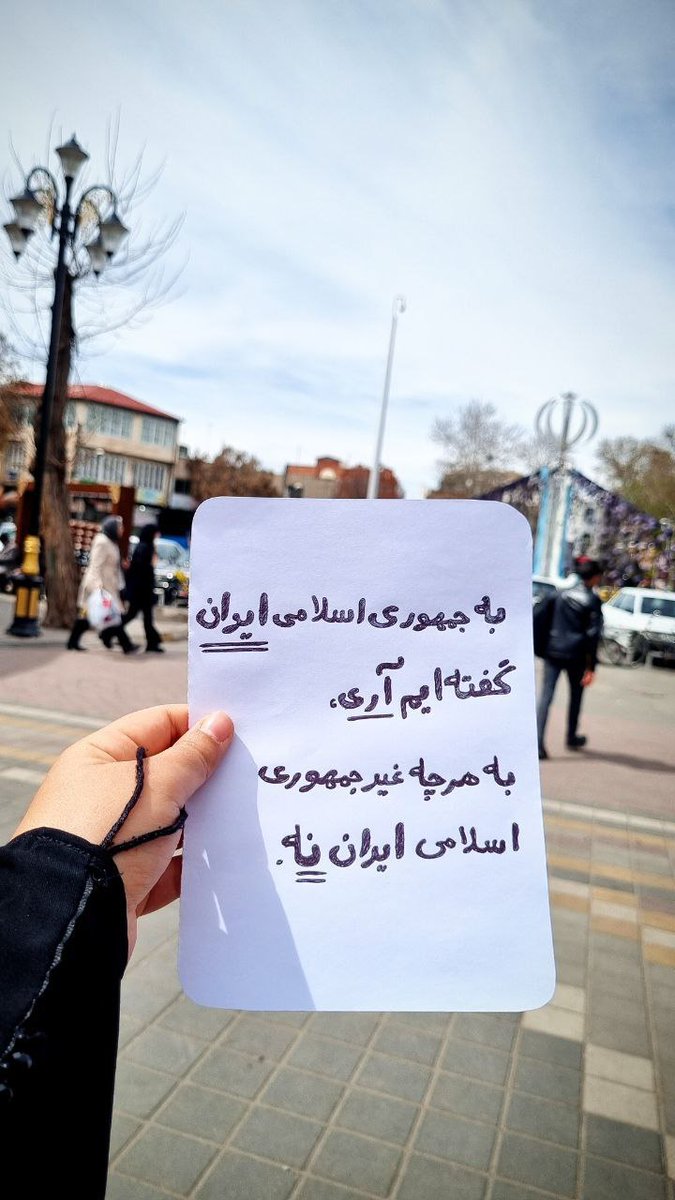 به جمهوری اسلامی ایران
گفته ایم آری.
به هرچه غیر جمهوری
اسلامی ایران نه.